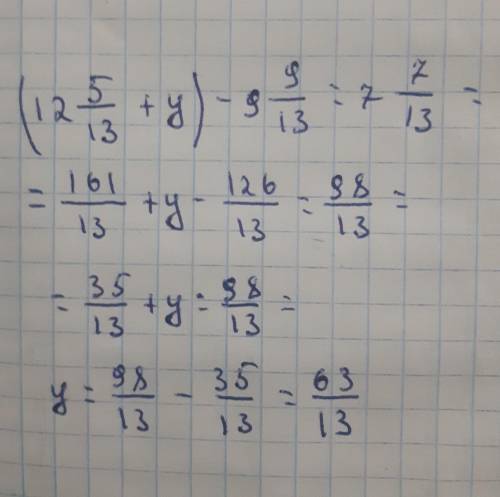 (12 5/13 + y) - 9 9/13 = 7 7/13 =
= 161/13 + y - 126/13 = 98/13 =
= 35/13 + y = 98/13 =
y = 98/13 - 35/13 = 63/13